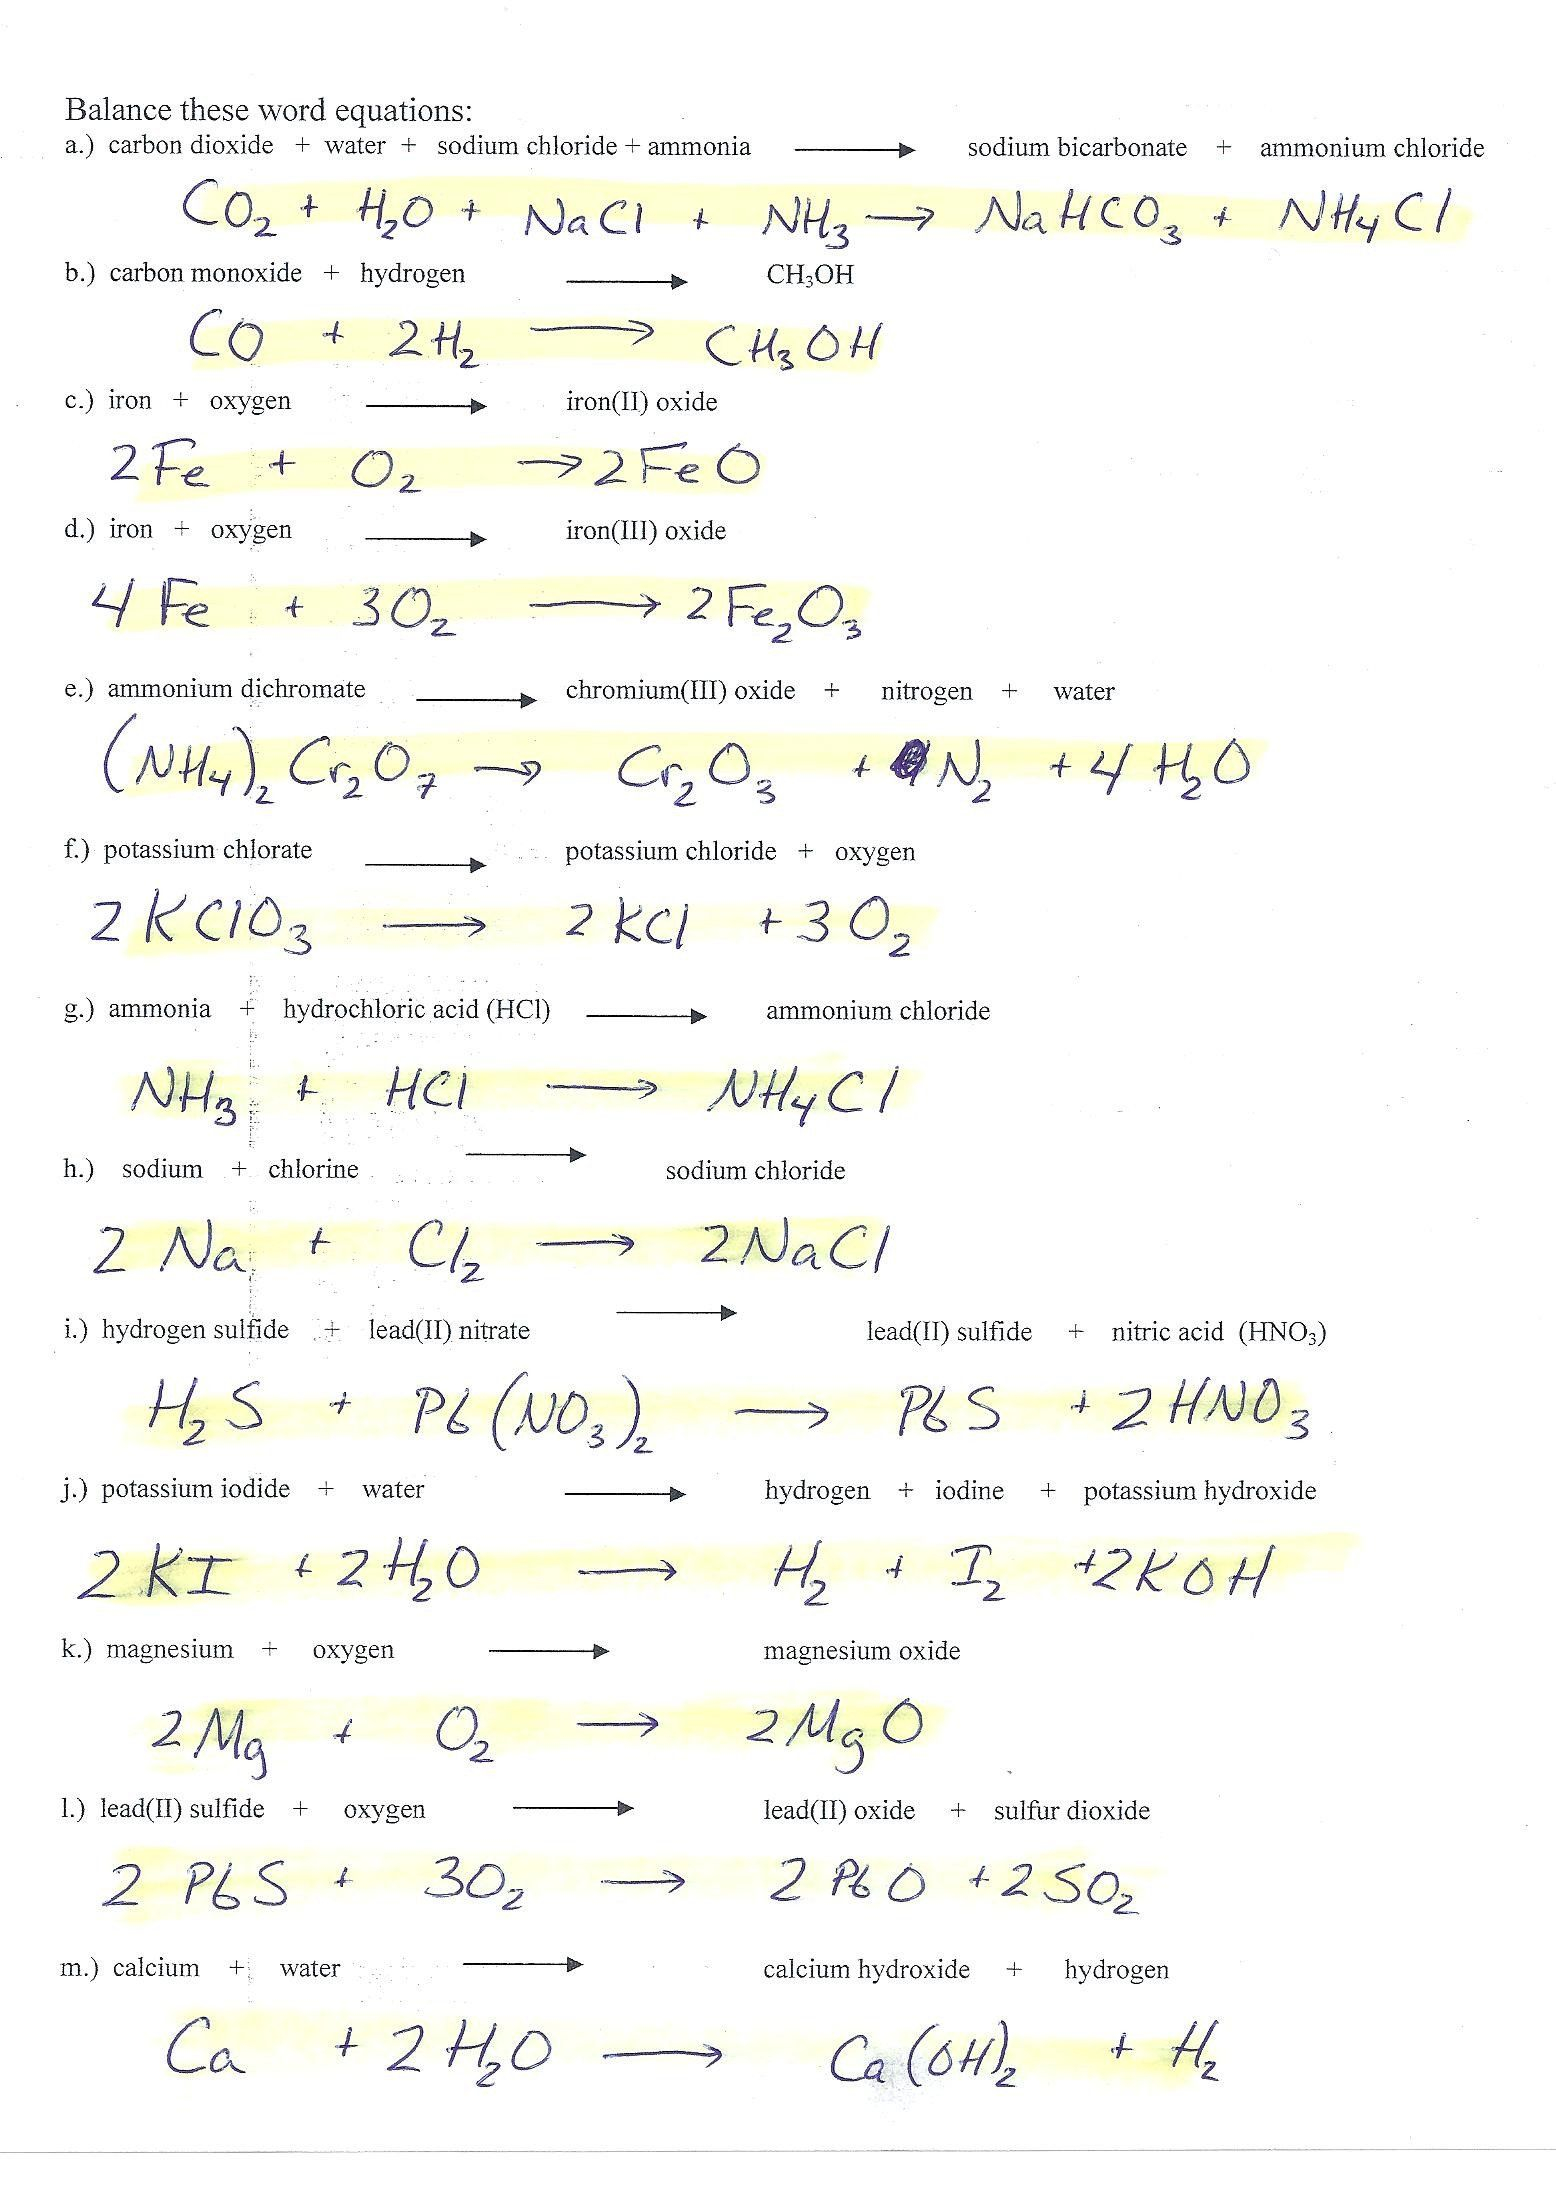 Balance these word equations:
a.) carbon dioxide + water + sodium chloride + ammonia ⟶ sodium bicarbonate + ammonium chloride
CO₂ + H₂O + NaCl + NH₃ → NaHCO₃ + NH₄Cl
b.) carbon monoxide + hydrogen ⟶ CH₃OH
CO + 2H₂ → CH₃OH
c.) iron + oxygen ⟶ iron(II) oxide
2Fe + O₂ → 2FeO
d.) iron + oxygen ⟶ iron(III) oxide
4Fe + 3O₂ → 2Fe₂O₃
e.) ammonium dichromate ⟶ chromium(III) oxide + nitrogen + water
(NH₄)₂Cr₂O₇ → Cr₂O₃ + N₂ + 4H₂O
f.) potassium chlorate ⟶ potassium chloride + oxygen
2KClO₃ → 2KCl + 3O₂
g.) ammonia + hydrochloric acid (HCl) ⟶ ammonium chloride
NH₃ + HCl → NH₄Cl
h.) sodium + chlorine ⟶ sodium chloride
2Na + Cl₂ → 2NaCl
i.) hydrogen sulfide + lead(II) nitrate ⟶ lead(II) sulfide + nitric acid (HNO₃)
H₂S + Pb(NO₃)₂ → PbS + 2HNO₃
j.) potassium iodide + water ⟶ hydrogen + iodine + potassium hydroxide
2KI + 2H₂O → H₂ + I₂ + 2KOH
k.) magnesium + oxygen ⟶ magnesium oxide
2Mg + O₂ → 2MgO
l.) lead(II) sulfide + oxygen ⟶ lead(II) oxide + sulfur dioxide
2PbS + 3O₂ → 2PbO + 2SO₂
m.) calcium + water ⟶ calcium hydroxide + hydrogen
Ca + 2H₂O → Ca(OH)₂ + H₂